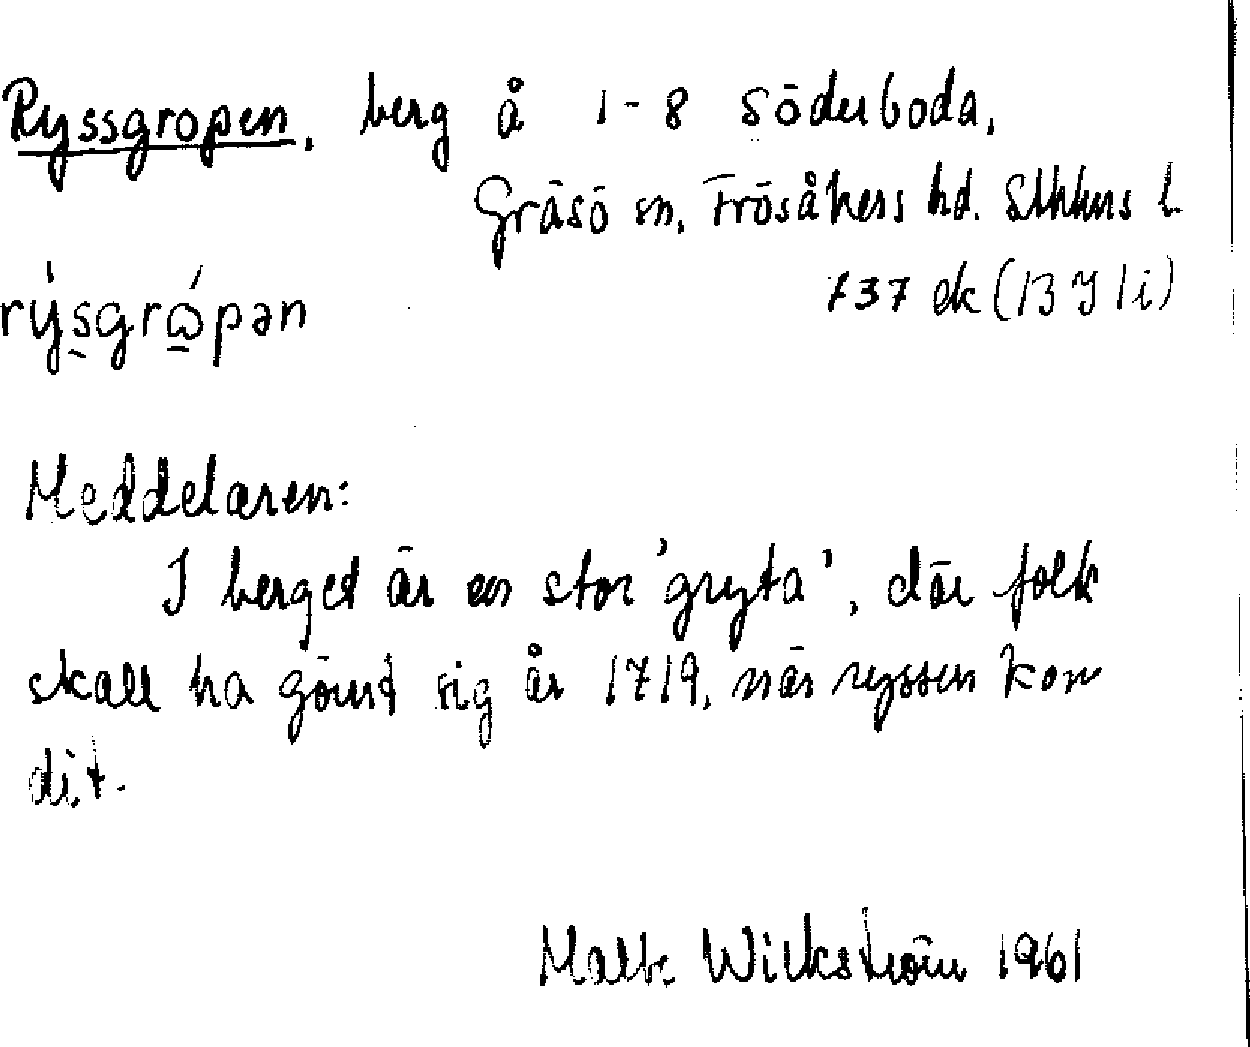 Ryssgropen, berg å 1-8 Söderboda,
Gräsö sn, Frösåkers hd. Sthlms l.
137 ek (13 Y 1 i)
rýsgrópan
Meddelaren:
I berget är en stor 'gryta', där folk
skall ha gömt sig år 1719, när ryssen kom
dit.
Malte Wikström 1961